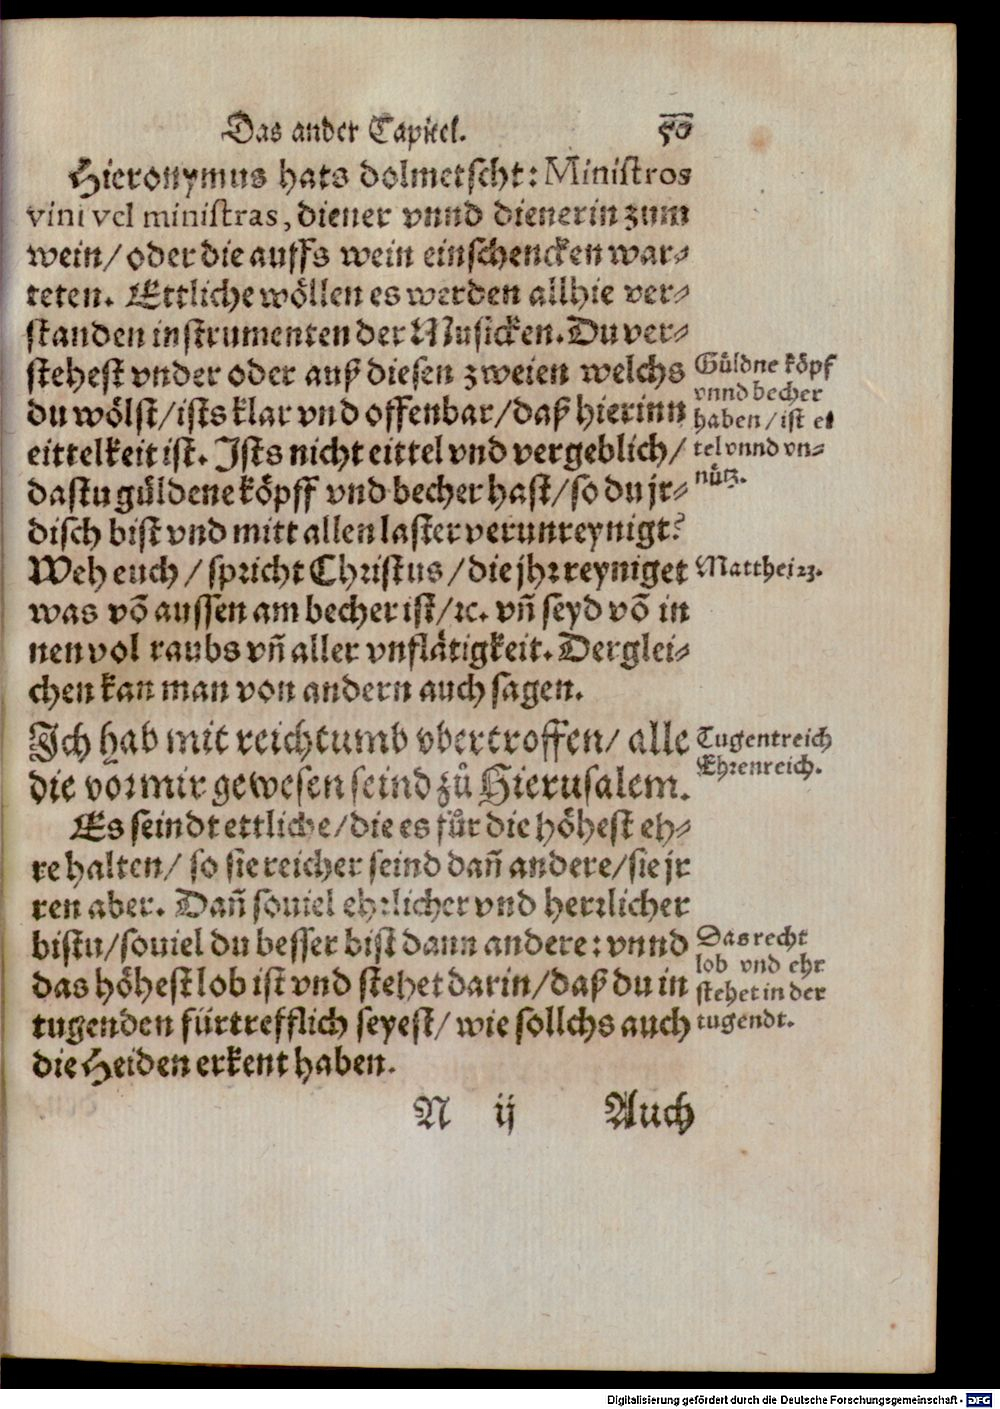 Das ander Capitel. 50
Hieronymus hats dolmetscht: Ministros
vini vel ministras, diener vnnd dienerin zum
wein/ oder die auffs wein einschencken war-
teten. Ettliche wöllen es werden allhie ver-
standen instrumenten der Musicken. Du ver-
stehest vnder oder auß diesen zweien welchs
du wölst/ ists klar vnd offenbar/ daß hierinn
eittelkeit ist. Ists nicht eittel vnd vergeblich/
dastu güldene köpff vnd becher hast/ so du jr-
disch bist vnd mitt allen laster verunreynigt?
Weh euch/ spricht Christus/ die jhr reyniget
was võ aussen am becher ist/ ꝛc. vñ seyd võ in
nen vol raubs vñ aller vnflätigkeit. Derglei-
chen kan man von andern auch sagen.
Güldne köpf
vnnd becher
haben/ ist ei
tel vnnd vn-
nütz.
Matthei 23.
Ich hab mit reichtumb vbertroffen/ alle
die vor mir gewesen seind zů Hierusalem.
Tugentreich
Ehrenreich.
Es seindt ettliche/ die es für die höhest eh-
re halten/ so sie reicher seind dañ andere/ sie jr
ren aber. Dañ souiel ehrlicher vnd herrlicher
bistu/ souiel du besser bist dann andere: vnnd
das höhest lob ist vnd stehet darin/ daß du in
tugenden fürtrefflich seyest/ wie sollchs auch
die Heiden erkent haben.
Das recht
lob vnd ehr
stehet in der
tugendt.
N ij Auch
Digitalisierung gefördert durch die Deutsche Forschungsgemeinschaft - DFG